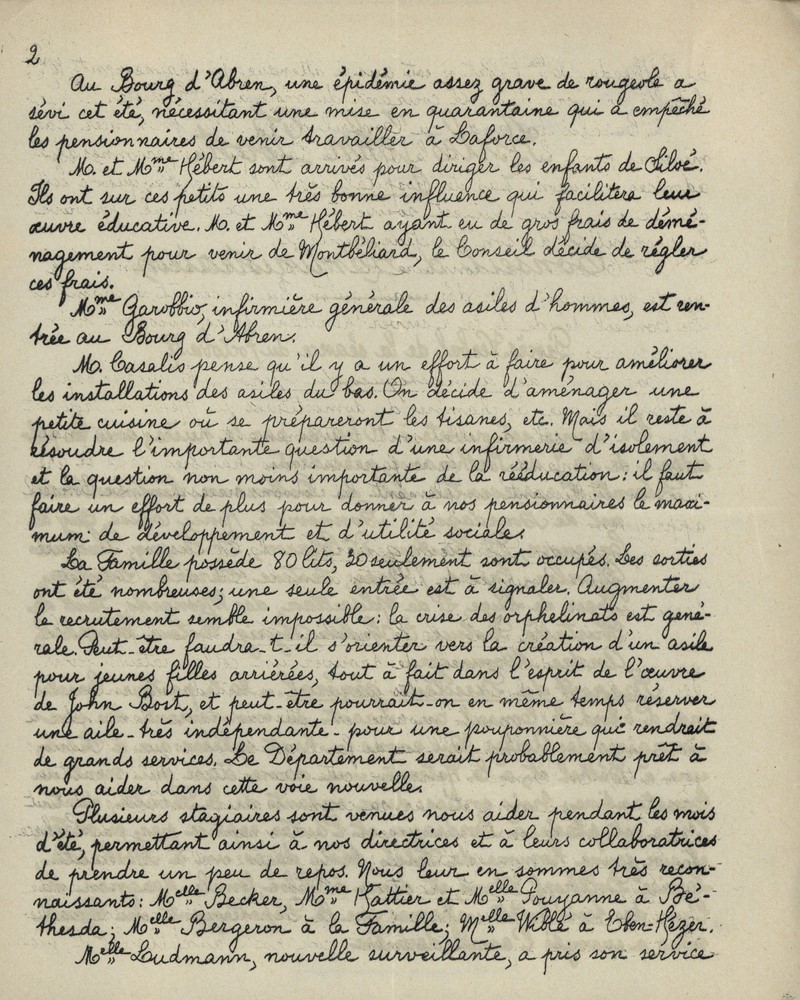 2
Au Bourg d'Abren, une épidémie assez grave de rougeole a
sévi cet été, nécessitant une mise en quarantaine qui a empêché
les pensionnaires de venir travailler à Laforce.
M. et Mme Hébert sont arrivés pour diriger les enfants de Siloé.
Ils ont sur ces petits une très bonne influence qui facilitera leur
œuvre éducative. M. et Mme Hébert ayant eu de gros frais de démé-
nagement pour venir de Montbéliard, le Conseil décide de régler
ces frais.
Mme Garobbio, infirmière générale des asiles d'hommes, est ren-
trée au Bourg d'Abren.
M. Casalis pense qu'il y a un effort à faire pour améliorer
les installations des asiles du bas. On décide d'aménager une
petite cuisine où se prépareront les tisanes, etc. Mais il reste à
résoudre l'importante question d'une infirmerie d'isolement
et la question non moins importante de la rééducation : il faut
faire un effort de plus pour donner à nos pensionnaires le maxi-
mum de développement et d'utilité sociale.
La Famille possède 80 lits, 30 seulement sont occupés. Les sorties
ont été nombreuses; une seule entrée est à signaler. Augmenter
le recrutement semble impossible : la crise des orphelinats est géné-
rale. Peut-être faudra-t-il s'orienter vers la création d'un asile
pour jeunes filles arriérées, tout à fait dans l'esprit de l'œuvre
de John Bost, et peut-être pourrait-on en même temps réserver
une aile - très indépendante - pour une pouponnière qui rendrait
de grands services. Le Département serait probablement prêt à
nous aider dans cette voie nouvelle.
Plusieurs stagiaires sont venues nous aider pendant les mois
d'été, permettant ainsi à nos directrices et à leurs collaboratrices
de prendre un peu de repos. Nous leur en sommes très recon-
naissants : Melle Becker, Mme Kattier et Melle Pouyanne à Bé-
thesda; Melle Bergeron à la Famille; Melle Wiblé à Eben-Hézer.
Melle Ludmann, nouvelle surveillante, a pris son service